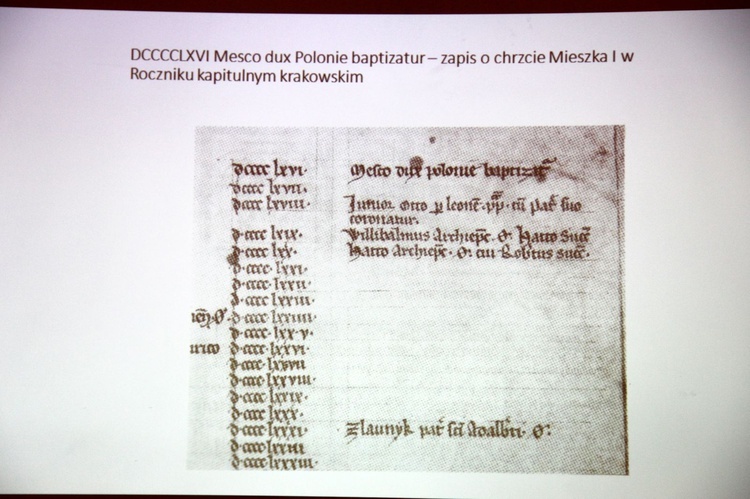 DCCCCLXVI Mesco dux Polonie baptizatur – zapis o chrzcie Mieszka I w
Roczniku kapitulnym krakowskim
dcccc lxvi· Mesco dux polonie baptizat
dcccc lxvii·
dcccc lxviii· Iunior Otto p leone pp cu pat suo
coronatur.
d·cccc lxix· Willihalmus Archiepc· O· Hatto Succ
d·cccc lxx· Hatto Archiepc· O· cui Robtus succ·
d·cccc lxxi·
d·cccc lxxii·
d·cccc lxxiii·
d·cccc lxxiiii·
d·cccc lxx·v·
d·cccc lxxvi·
d·cccc lxxvii
d·cccc lxxviii·
d·cccc lxxix·
d·cccc lxxx·
d·cccc lxxxi· Zlaunyk pat sci Adalbti O·
d·cccc lxxxiii·